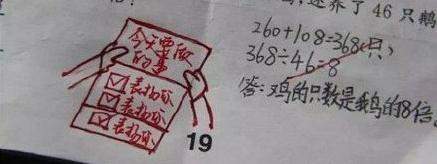 还养了46只鹅
今天要做
的事
表扬你
表扬你
表扬你
19
260+108=368(只)
368÷46=8
答:鸡的只数是鹅的8倍。